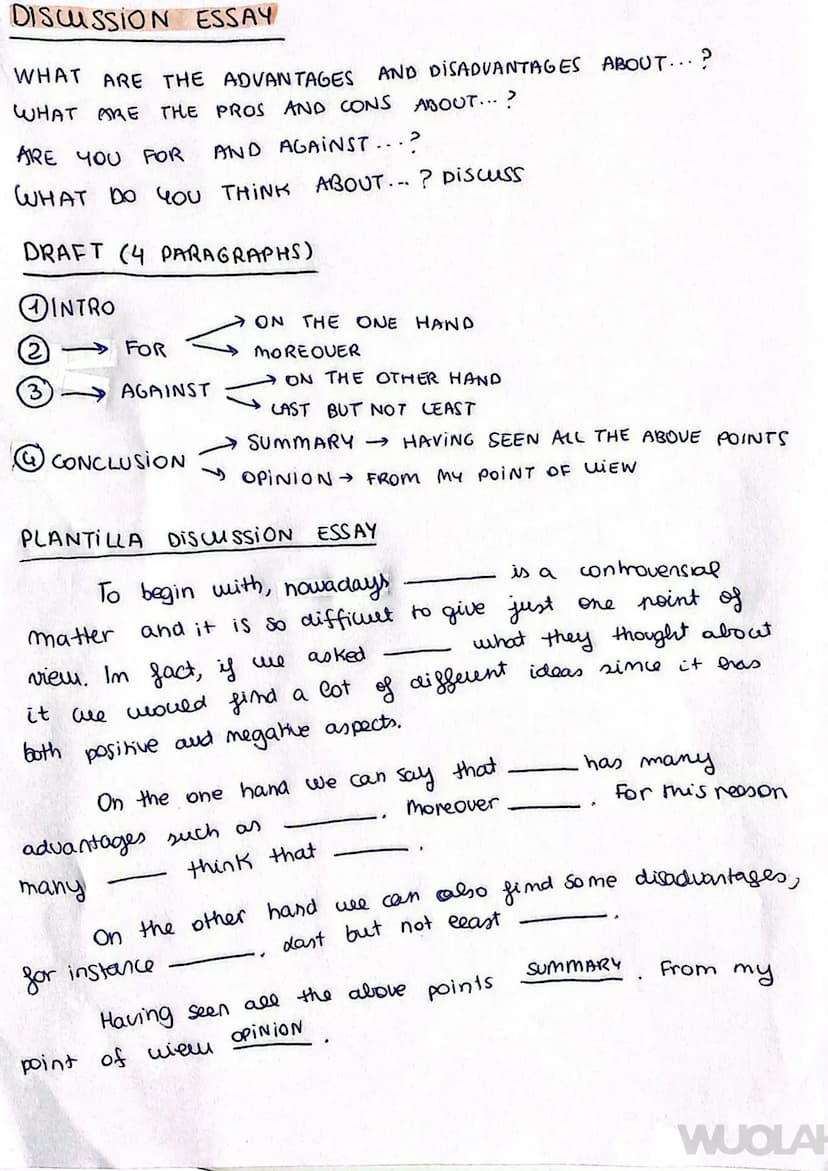 DISCUSSION ESSAY
WHAT ARE THE ADVANTAGES AND DISADVANTAGES ABOUT...?
WHAT ARE THE PROS AND CONS ABOUT...?
ARE YOU FOR AND AGAINST...?
WHAT DO YOU THINK ABOUT...? DISCUSS
DRAFT (4 PARAGRAPHS)
① INTRO
② → FOR → ON THE ONE HAND
→ MOREOVER
③ → AGAINST → ON THE OTHER HAND
→ LAST BUT NOT LEAST
④ CONCLUSION → SUMMARY → HAVING SEEN ALL THE ABOVE POINTS
→ OPINION → FROM MY POINT OF VIEW
PLANTILLA DISCUSSION ESSAY
To begin with, nowadays ______ is a controversial
matter and it is so difficult to give just one point of
view. In fact, if we asked ______ what they thought about
it we would find a lot of different ideas since it has
both positive and negative aspects.
On the one hand we can say that ______ has many
advantages such as ______. Moreover ______. For this reason
many ______ think that ______.
On the other hand we can also find some disadvantages,
for instance ______. Last but not least ______.
Having seen all the above points SUMMARY. From my
point of view OPINION.
WUOLAH